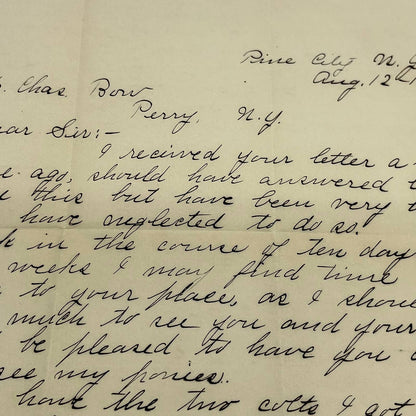 Pine City N.Y.
Aug. 12th
Chas. Bow
Perry, N.Y.
ear Sir:-
I received your letter a
ago, should have answered
this but have been very
have neglected to do so.
in the course of ten day
weeks I may find time
to your place, as I shoul
much to see you and your
be pleased to have you
see my ponies.
have the two colts I got